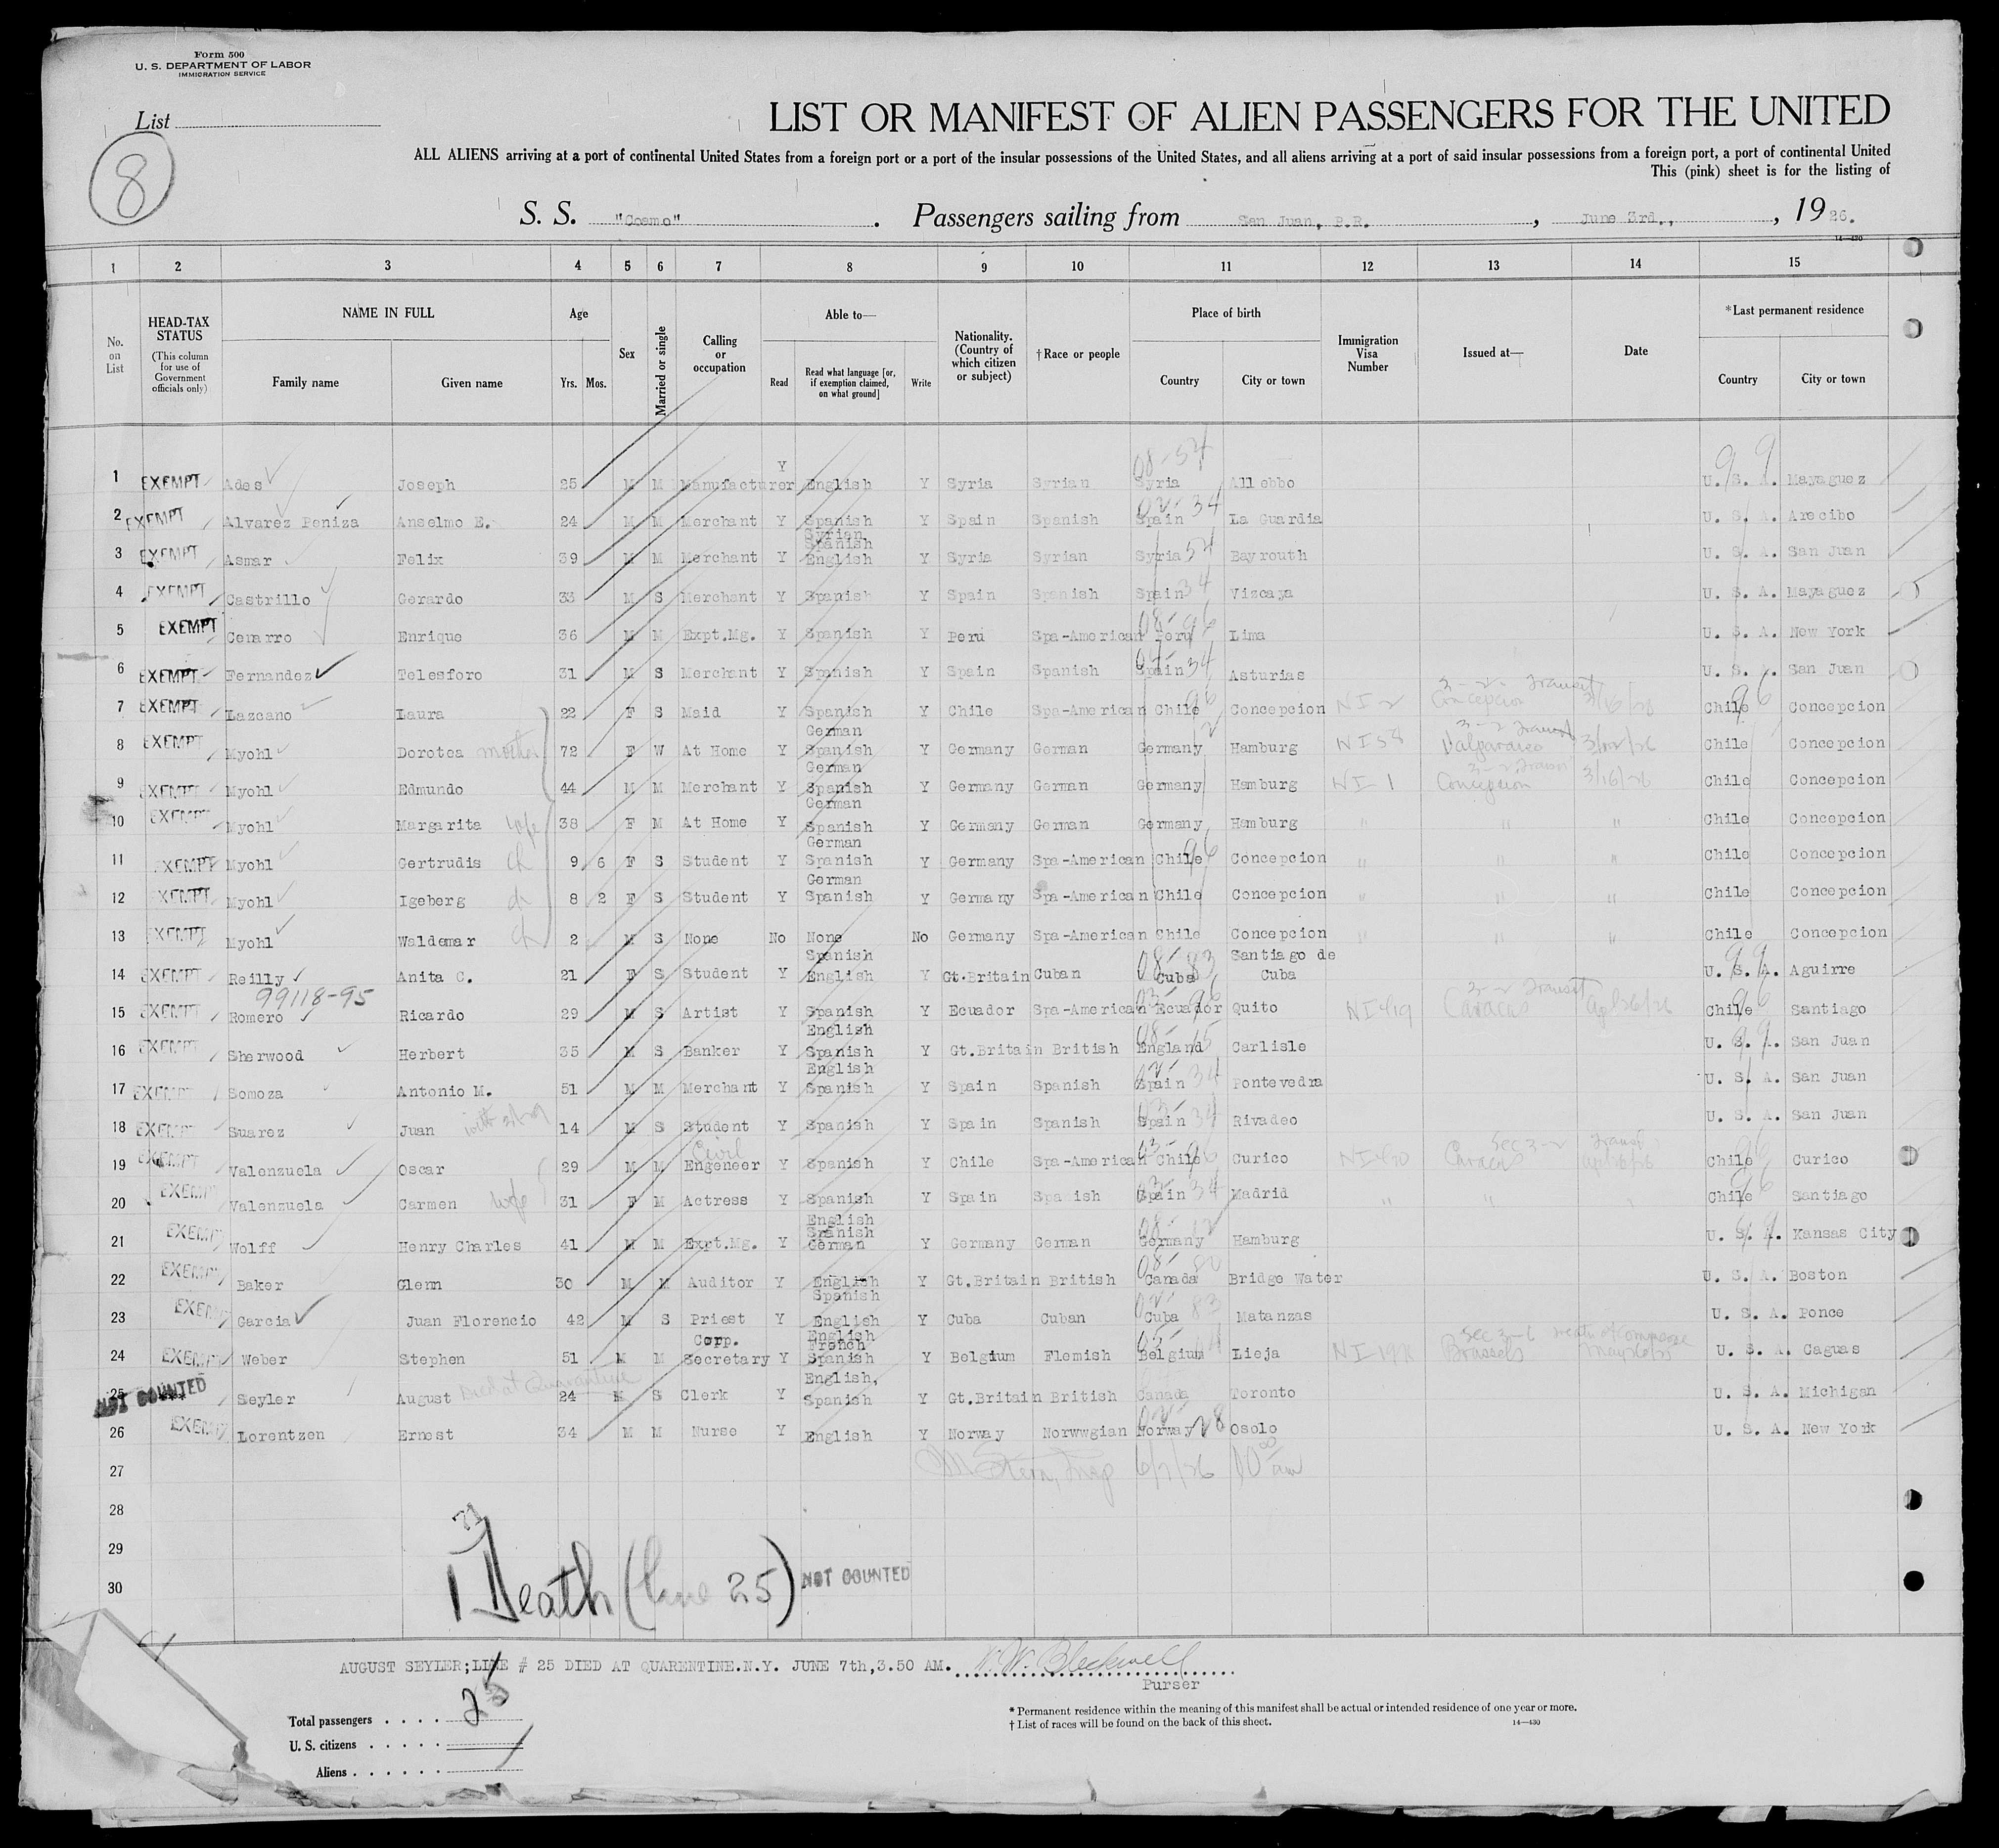 Form 500
U. S. DEPARTMENT OF LABOR
IMMIGRATION SERVICE
List
8
LIST OR MANIFEST OF ALIEN PASSENGERS FOR THE UNITED
ALL ALIENS arriving at a port of continental United States from a foreign port or a port of the insular possessions of the United States, and all aliens arriving at a port of said insular possessions from a foreign port, a port of continental United
This (pink) sheet is for the listing of
S. S. "Coamo". Passengers sailing from San Juan, P.R., June 3rd., 1926.
14—430
1 2 3 4 5 6 7 8 9 10 11 12 13 14 15
No. on List
HEAD-TAX STATUS (This column for use of Government officials only)
NAME IN FULL
Family name
Given name
Age
Yrs. Mos.
Sex
Married or single
Calling or occupation
Able to—
Read
Read what language [or, if exemption claimed, on what ground]
Write
Nationality. (Country of which citizen or subject)
†Race or people
Place of birth
Country
City or town
Immigration Visa Number
Issued at—
Date
*Last permanent residence
Country
City or town
1 EXEMPT Ades Joseph 25 M M Manufacturer Y English Y Syria Syrian 08-54 Syria Allebbo U. S. A. Mayaguez
2 EXEMPT Alvarez Peniza Anselmo E. 24 M M Merchant Y Spanish Y Spain Spanish 02-34 Spain La Guardia U. S. A. Arecibo
3 EXEMPT Asmar Felix 39 M M Merchant Y Syrian Spanish English Y Syria Syrian Syria 54 Bayrouth U. S. A. San Juan
4 EXEMPT Castrillo Gerardo 33 M S Merchant Y Spanish Y Spain Spanish Spain 34 Vizcaya U. S. A. Mayaguez
5 EXEMPT Cenarro Enrique 36 M M Expt.Mg. Y Spanish Y Peru Spa-American 08-96 Peru Lima U. S. A. New York
6 EXEMPT Fernandez Telesforo 31 M S Merchant Y Spanish Y Spain Spanish Spain 34 Asturias U. S. A. San Juan
7 EXEMPT Lazcano Laura 22 F S Maid Y Spanish Y Chile Spa-American Chile 96 Concepcion NI-2 3-2- Transit Concepcion 3/16/26 Chile 96 Concepcion
8 EXEMPT Myohl Dorotea mother 72 F W At Home Y German Spanish Y Germany German Germany Hamburg NI 58 3-2 Transit Valparaiso 3/12/26 Chile Concepcion
9 EXEMPT Myohl Edmundo 44 M M Merchant Y German Spanish Y Germany German Germany Hamburg NI-1 3-2 Transit Concepcion 3/16/26 Chile Concepcion
10 EXEMPT Myohl Margarita wife 38 F M At Home Y German Spanish Y Germany German Germany Hamburg " " " Chile Concepcion
11 EXEMPT Myohl Gertrudis ch 9 6 F S Student Y German Spanish Y Germany Spa-American Chile 96 Concepcion " " " Chile Concepcion
12 EXEMPT Myohl Igeberg ch 8 2 F S Student Y German Spanish Y Germany Spa-American Chile Concepcion " " " Chile Concepcion
13 EXEMPT Myohl Waldemar ch 2 M S None No None No Germany Spa-American Chile Concepcion " " " Chile Concepcion
14 EXEMPT Reilly Anita C. 21 F S Student Y Spanish English Y Gt.Britain Cuban 08-83 Cuba Santiago de Cuba U. S. A. Aguirre
99118-95
15 EXEMPT Romero Ricardo 29 M S Artist Y Spanish Y Ecuador Spa-American 03-96 Ecuador Quito NI 419 3-2 Transit Caracas Apl 26/26 Chile 96 Santiago
16 EXEMPT Sherwood Herbert 35 M S Banker Y English Spanish Y Gt.Britain British 08-15 England Carlisle U. S. A. San Juan
17 EXEMPT Somoza Antonio M. 51 M M Merchant Y English Spanish Y Spain Spanish 02-34 Spain Pontevedra U. S. A. San Juan
18 EXEMPT Suarez Juan 14 M S Student Y Spanish Y Spain Spanish 03-34 Spain Rivadeo U. S. A. San Juan
19 EXEMPT Valenzuela Oscar 29 M M Civil Engeneer Y Spanish Y Chile Spa-American 03-96 Chile Curico NI 420 Sec 3-2 Transit Caracas Apl 26/26 Chile 96 Curico
20 EXEMPT Valenzuela Carmen wife 31 F M Actress Y Spanish Y Spain Spanish 03-34 Spain Madrid " " " Chile 96 Santiago
21 EXEMPT Wolff Henry Charles 41 M M Expt.Mg. Y English Spanish German Y Germany German 08-12 Germany Hamburg U. S. A. Kansas City
22 EXEMPT Baker Glenn 30 M M Auditor Y English Y Gt.Britain British 08- Canada Bridge Water U. S. A. Boston
23 EXEMPT Garcia Juan Florencio 42 M S Priest Y Spanish English Y Cuba Cuban 02-83 Cuba Matanzas U. S. A. Ponce
24 EXEMPT Weber Stephen 51 M M Corp. Secretary Y English French Spanish Y Belgium Flemish 05- Belgium Lieja Sec 3-6 Brussels U. S. A. Caguas
25 NOT COUNTED Seyler August Died at Quarantine 24 M S Clerk Y English, Spanish Y Gt.Britain British Canada Toronto U. S. A. Michigan
26 EXEMPT Lorentzen Ernest 34 M M Nurse Y English Y Norway Norwwgian 02-28 Norway Osolo U. S. A. New York
27 M Stern, Insp 6/7/26 10 00 am
28
29
30
1 Death (line 25) NOT COUNTED
AUGUST SEYLER;LINE # 25 DIED AT QUARENTINE.N.Y. JUNE 7th,3.50 AM. W. Blackwell
Purser
Total passengers . . . . 25
U. S. citizens . . . . .
Aliens . . . . . .
* Permanent residence within the meaning of this manifest shall be actual or intended residence of one year or more.
† List of races will be found on the back of this sheet.
14—430